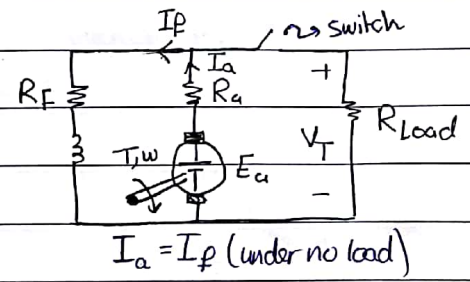 If
switch
Ia
+
RF
Ra
RLoad
VT
T,w
Ea
−
Ia = If (under no load)